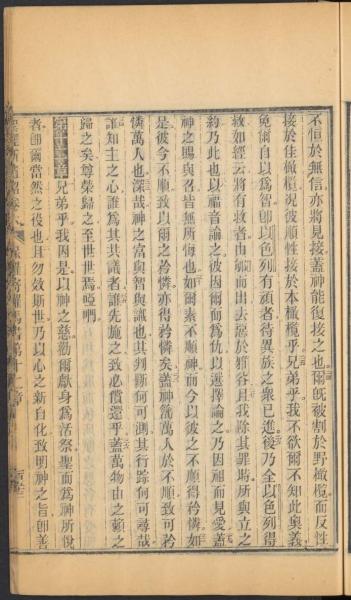 不恒於無信亦將見接蓋神能復接之也爾既被割於野橄欖而反性
接於佳橄欖況彼順性接於本橄欖乎兄弟乎我不欲爾不知此奧義
免爾自以爲智卽以色列有頑者待異族之衆已進後乃全以色列得
救如經云將有救者由郇而出去惡於雅各且我除其罪時所與立之
約乃此也以福音論之彼因爾而爲仇以選擇論之乃因祖而見愛蓋
神之賜與召皆無所悔也如爾素不順神而今以彼之不順得矜憐如
是彼今不順致以爾之矜憐亦得矜憐矣蓋神籠萬人於不順致可矜
憐萬人也深哉神之富與智與識也其判斷何可測其行踪何可尋哉
誰知主之心誰爲其共議者誰先施之致必償還乎蓋萬物由之賴之
歸之矣尊榮歸之至世世焉啞𠵽
兄弟乎我因是以神之慈勸爾獻身爲活祭聖而爲神所悅
者卽爾當然之役也且勿效斯世乃以心之新自化致明神之旨卽善